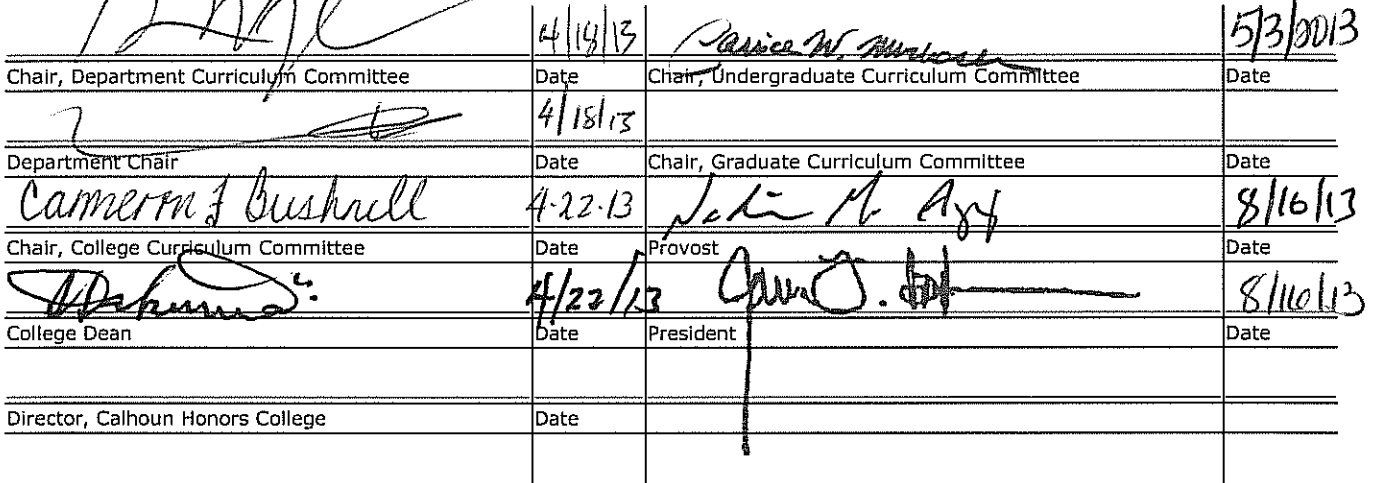 4/18/13 Janice W. 5/3/2013
Chair, Department Curriculum Committee Date Chair, Undergraduate Curriculum Committee Date
4/18/13
Department Chair Date Chair, Graduate Curriculum Committee Date
Cameron F Bushnell 4-22-13 8/16/13
Chair, College Curriculum Committee Date Provost Date
4/22/13 8/16/13
College Dean Date President Date
Director, Calhoun Honors College Date